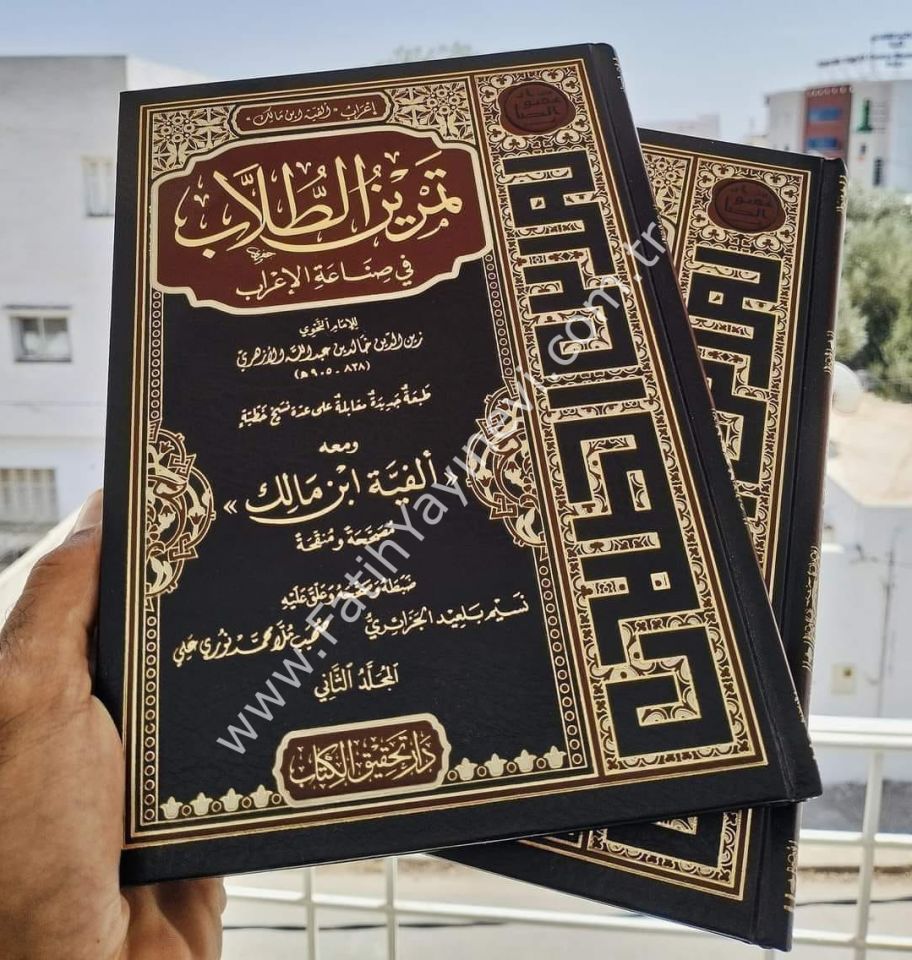 إعراب «ألفية ابن مالك»
تمرين الطلاب
في صناعة الإعراب
للإمام النحوي
زين الدين خالد بن عبد الله الأزهري
(٨٣٨ - ٩٠٥ هـ)
طبعة جديدة مقابلة على عدة نسخ خطية
ومعه
«ألفية ابن مالك»
مصححة ومنقحة
ضبطه وصححه وعلق عليه
نسيم بلعيد الجزائري
محمد نوري علي
المجلد الثاني
دار تحقيق الكتاب
www.FatihYayinevi.com.tr